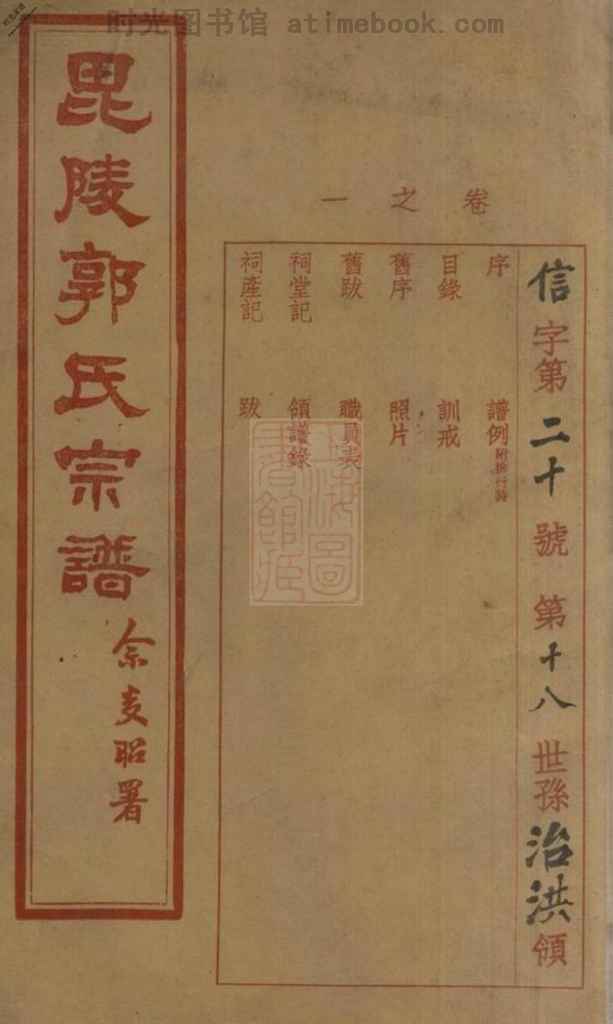 时光图书馆 atimebook.com
毘陵郭氏宗譜
余支昭署
卷之一
信字第二十號 第十八世孫治洪領
序 譜例附排行詩
目錄 訓戒
舊序 照片
舊跋 職員表
祠堂記 領譜錄
祠產記 跋